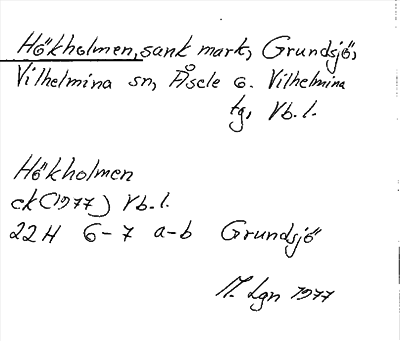 Hökholmen, sank mark, Grundsjö,
Vilhelmina sn, Åsele o. Vilhelmina
tg, Vb. l.
Hökholmen
ek (1977) Vb. l.
22H 6-7 a-b Grundsjö
M. Lgn 1977